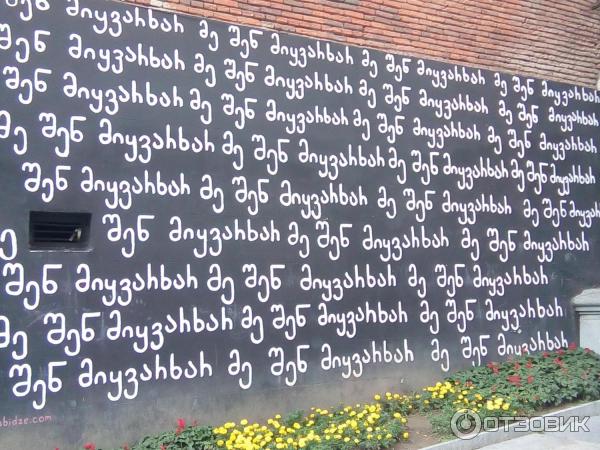 შენ მიყვარხარ მე შენ მიყვარხარ მე შენ მიყვარხარ მე შენ მიყვარხარ
შენ მიყვარხარ მე შენ მიყვარხარ მე შენ მიყვარხარ მე შენ მიყვარხარ
შენ მიყვარხარ მე შენ მიყვარხარ მე შენ მიყვარხარ მე შენ მიყვარხარ
მე შენ მიყვარხარ მე შენ მიყვარხარ მე შენ მიყვარხარ მე შენ მიყვარხარ
შენ მიყვარხარ მე შენ მიყვარხარ მე შენ მიყვარხარ მე შენ მიყვარხარ
მე შენ მიყვარხარ მე შენ მიყვარხარ მე შენ მიყვარხარ
შენ მიყვარხარ მე შენ მიყვარხარ მე შენ მიყვარხარ
მე შენ მიყვარხარ მე შენ მიყვარხარ მე შენ მიყვარხარ
შენ მიყვარხარ მე შენ მიყვარხარ მე შენ მიყვარხარ
bidze.com
ОТЗОВИК